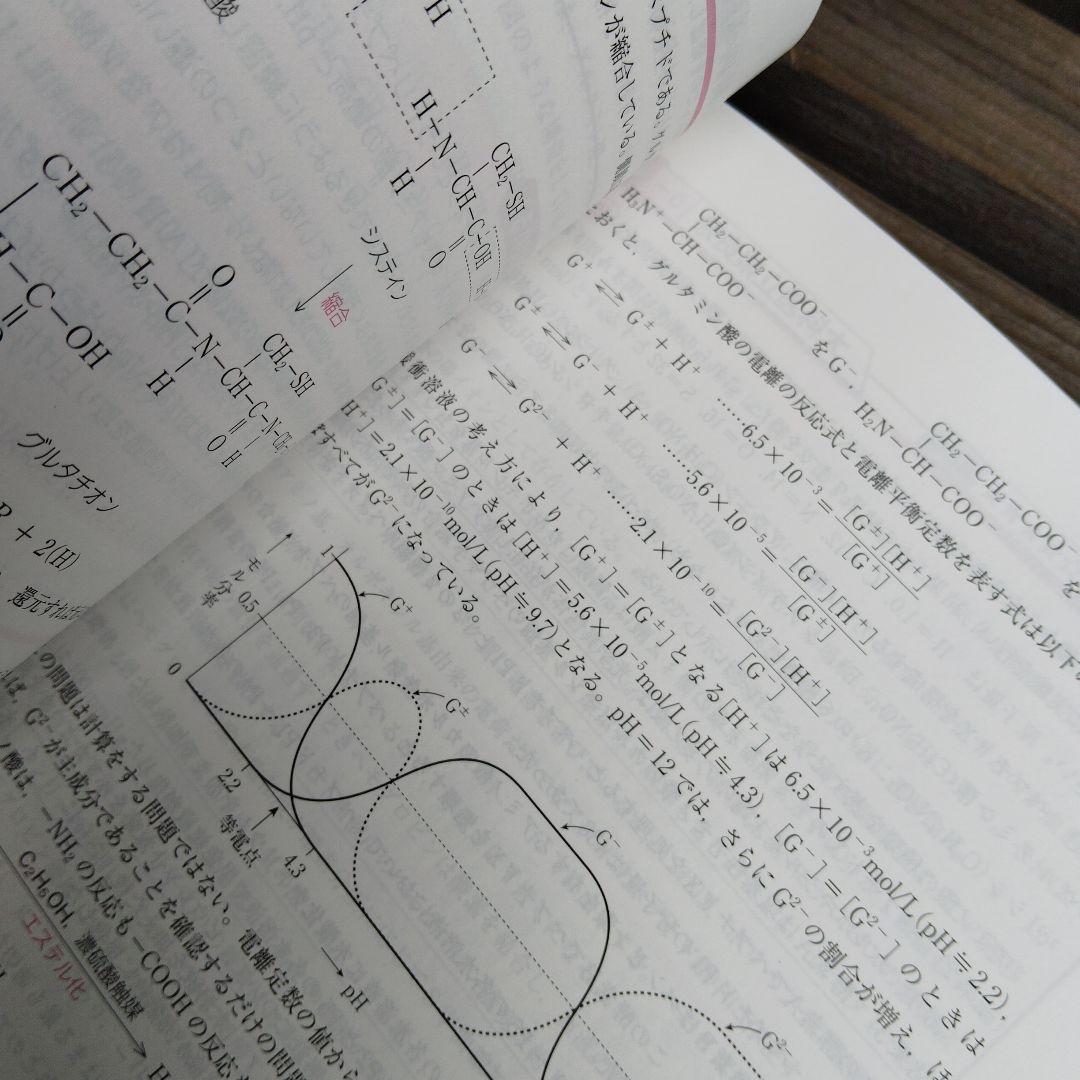 酸
プチドである。
ンが縮合している。
H
H
N
H
CH₂−SH
CH−C−OH
O
システイン
縮合
CH₂−CH₂−C−N−CH−C−N−CH₂
O
H
CH₂−SH
O
H
C−OH
グルタチオン
+ 2(H)
還元すれば
CH₂−CH₂−COO⁻
H₃N⁺−CH−COO⁻
をG⁻,
CH₂−CH₂−COO⁻
H₂N−CH−COO⁻
を
おくと,グルタミン酸の電離の反応式と電離平衡定数を表す式は以下
G⁺ ⇄ G± + H⁺ ……6.5×10⁻³=[G±][H⁺]/[G⁺]
G± ⇄ G⁻ + H⁺ ……5.6×10⁻⁵=[G⁻][H⁺]/[G±]
G⁻ ⇄ G²⁻ + H⁺ ……2.1×10⁻¹⁰=[G²⁻][H⁺]/[G⁻]
衝溶液の考え方により,[G⁺]=[G±]となる[H⁺]は6.5×10⁻³mol/L(pH≒2.2),
G±]=[G⁻]のときは[H⁺]=5.6×10⁻⁵mol/L(pH≒4.3),[G⁻]=[G²⁻]のときは
H⁺]=2.1×10⁻¹⁰mol/L(pH≒9.7)となる。pH=12では,さらにG²⁻の割合が増え,ほ
すべてがG²⁻になっている。
モル分率
1
0.5
0
G⁺
G±
G⁻
G²⁻
2.2
等電点
4.3
pH
の問題は計算をする問題ではない。電離定数の値から
ば,G²⁻が主成分であることを確認するだけの問題
酸は,−NH₂の反応も−COOHの反応
C₂H₅OH, 濃硫酸触媒
エステル化
H